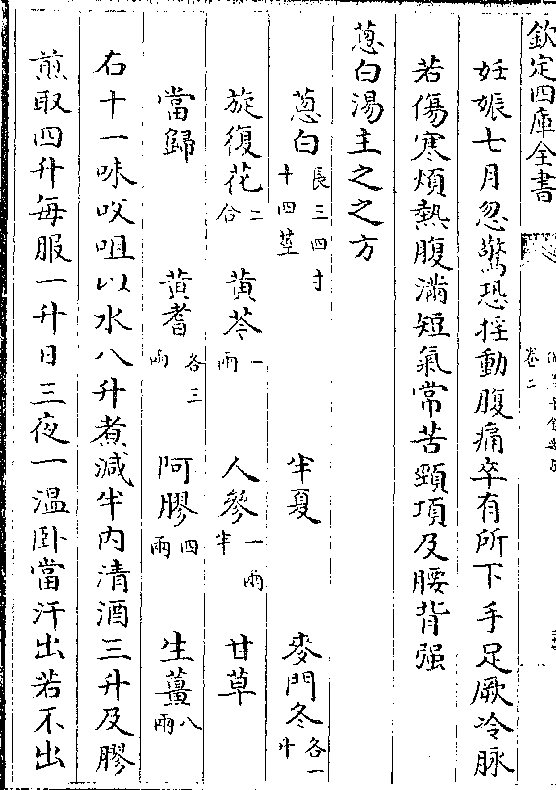 欽定四庫全書
卷二
妊娠七月忽驚恐揺動腹痛卒有所下手足厥冷脉
若傷寒煩熱腹滿短氣常苦頸項及腰背强
蔥白湯主之之方
蔥白長三四寸十四莖 半夏 麥門冬各一升
旋復花二合 黄芩一兩 人參一兩半 甘草
當歸 黄耆各三兩 阿膠四兩 生薑八兩
右十一味㕮咀以水八升煮減半内清酒三升及膠
煎取四升每服一升日三夜一溫卧當汗出若不出